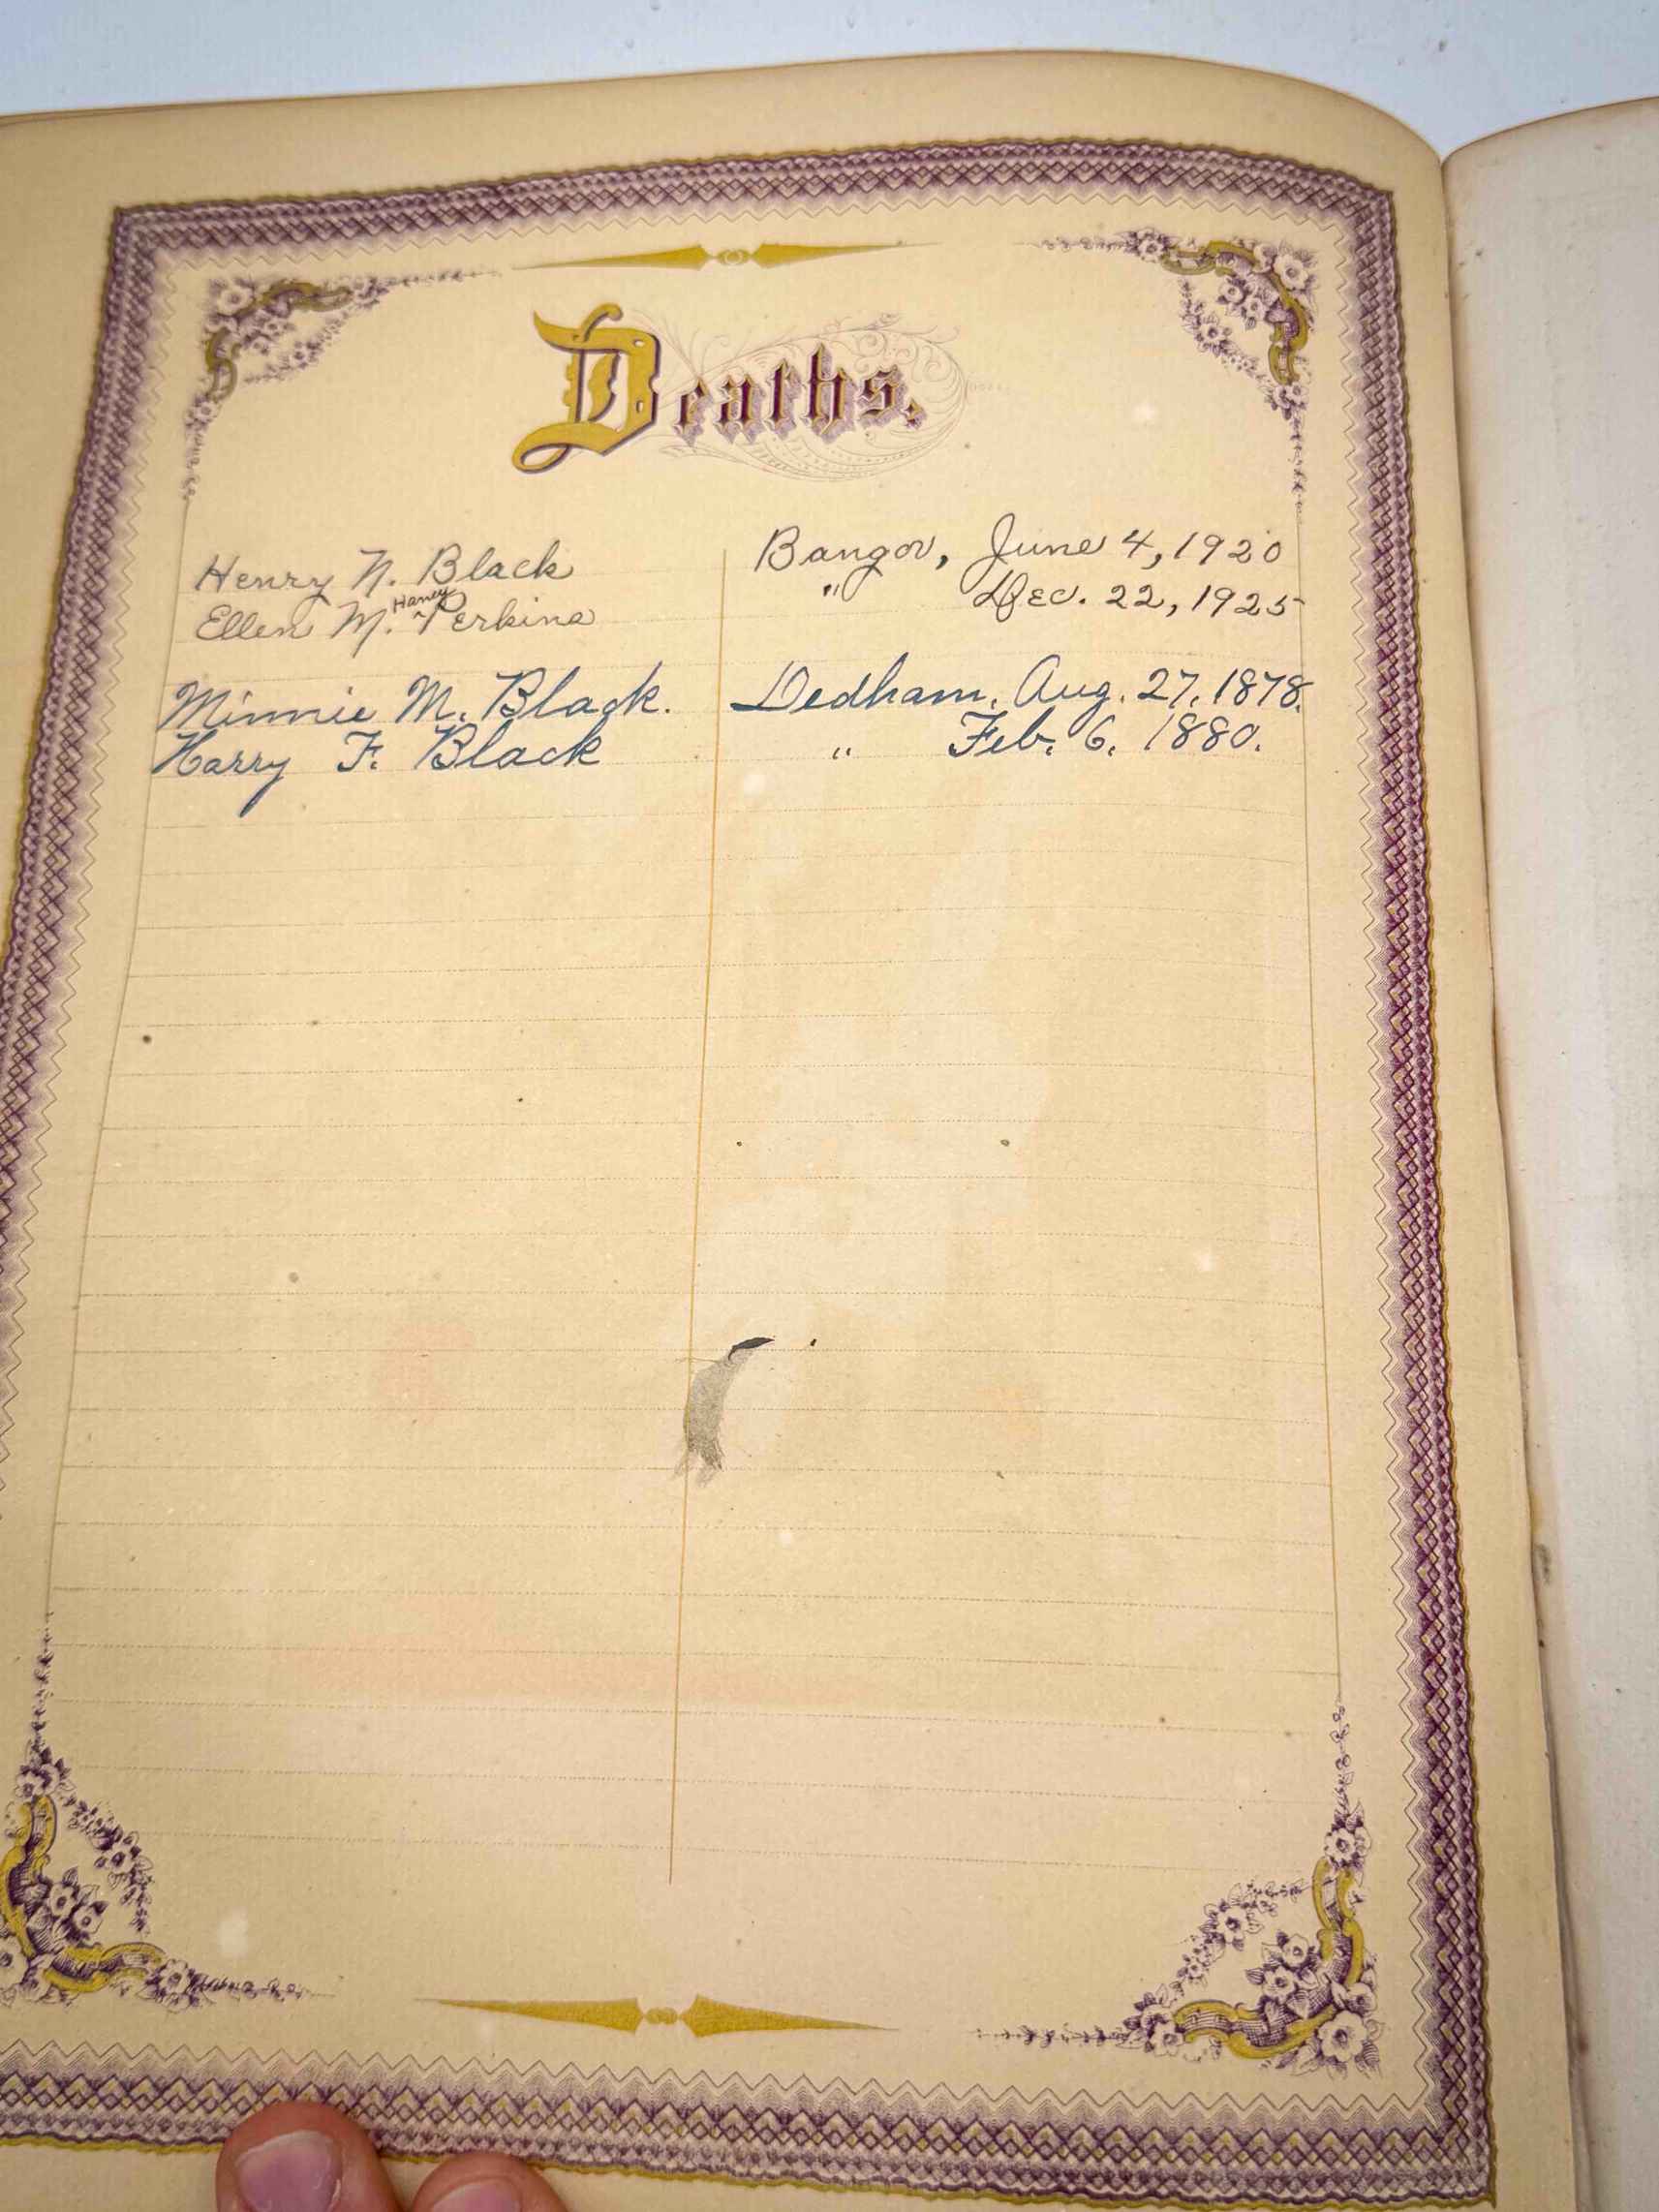 Deaths.
Henry N. Black Bangor, June 4, 1920
Haney
Ellen M. ^ Perkins " Dec. 22, 1925
Minnie M. Black. Dedham, Aug. 27, 1878.
Harry F. Black " Feb. 6, 1880.